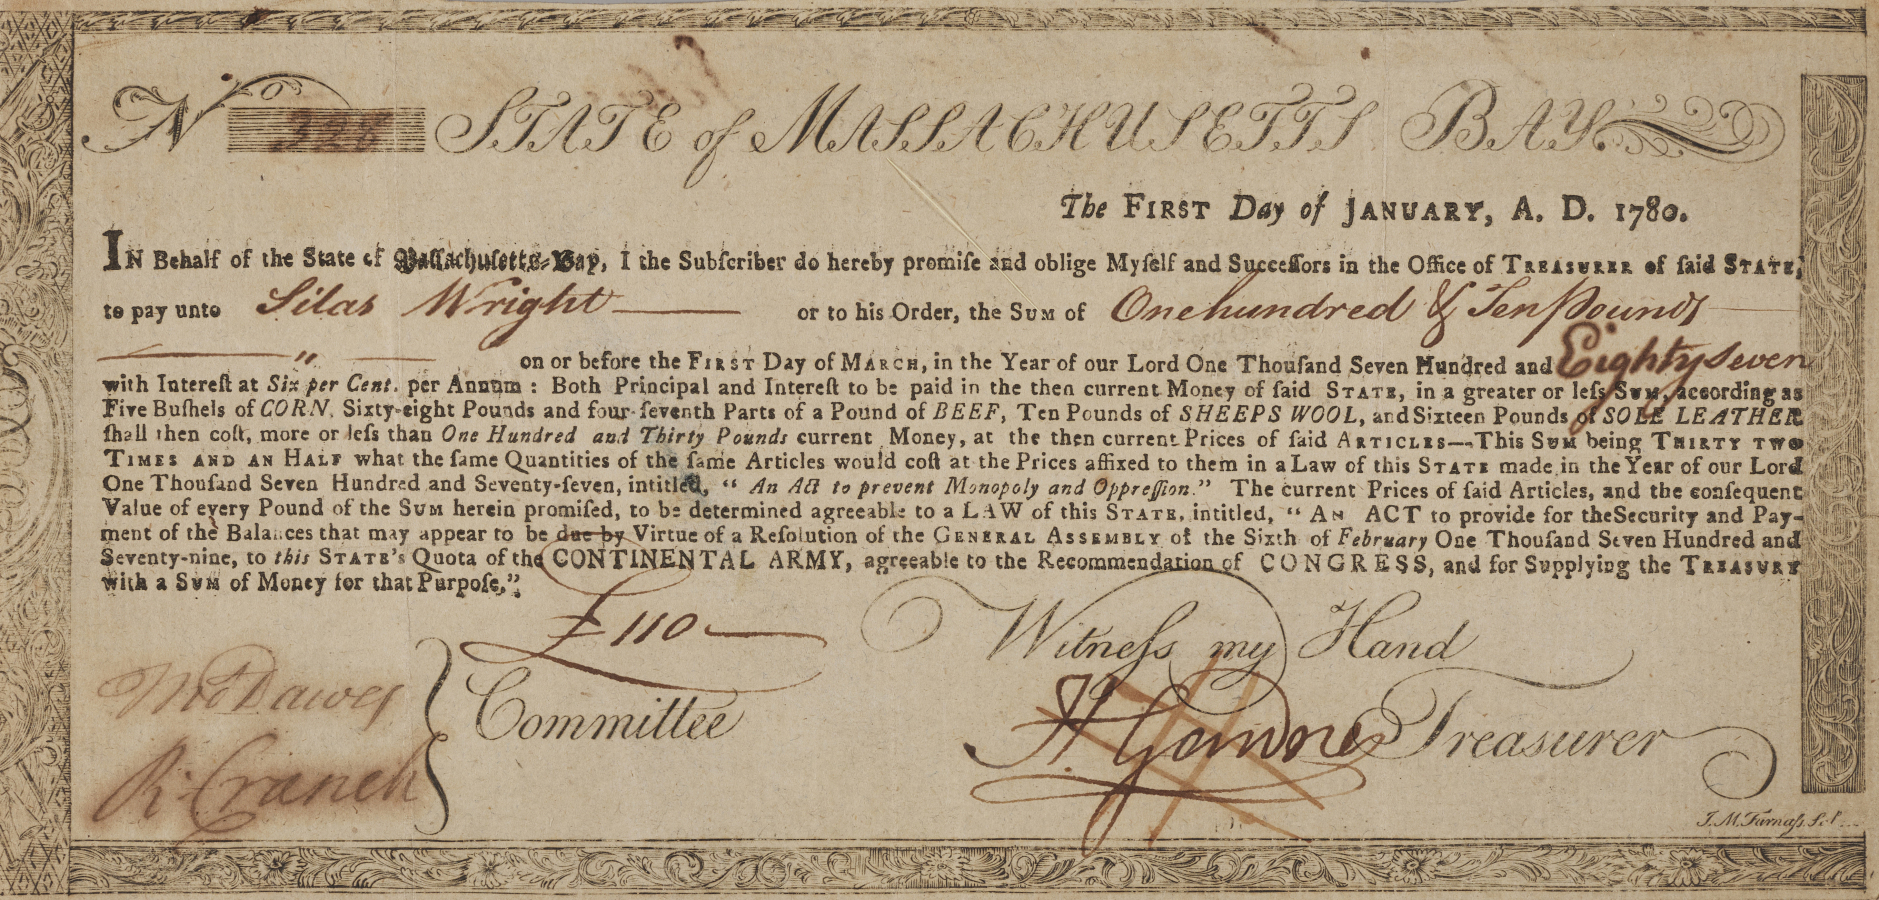 No 328 STATE of MASSACHUSETTS BAY
The FIRST Day of JANUARY, A. D. 1780.
IN Behalf of the State of Massachusetts-Bay, I the Subſcriber do hereby promiſe and oblige Myſelf and Succeſſors in the Office of TREASURER of ſaid STATE,
to pay unto Silas Wright or to his Order, the SUM of One hundred & Ten pounds
on or before the FIRST Day of MARCH, in the Year of our Lord One Thouſand Seven Hundred and Eighty Seven
with Intereſt at Six per Cent. per Annum : Both Principal and Intereſt to be paid in the then current Money of ſaid STATE, in a greater or leſs SUM, according as
Five Buſhels of CORN, Sixty-eight Pounds and four-ſeventh Parts of a Pound of BEEF, Ten Pounds of SHEEPS WOOL, and Sixteen Pounds of SOLE LEATHER
ſhall then coſt, more or leſs than One Hundred and Thirty Pounds current Money, at the then current Prices of ſaid ARTICLES—This SUM being THIRTY TWO
TIMES AND AN HALF what the ſame Quantities of the ſame Articles would coſt at the Prices affixed to them in a Law of this STATE made in the Year of our Lord
One Thouſand Seven Hundred and Seventy-ſeven, intitled, “ An Act to prevent Monopoly and Oppreſſion.” The current Prices of ſaid Articles, and the conſequent
Value of every Pound of the SUM herein promiſed, to be determined agreeable to a LAW of this STATE, intitled, “ AN ACT to provide for the Security and Pay-
ment of the Balances that may appear to be due by Virtue of a Reſolution of the GENERAL ASSEMBLY of the Sixth of February One Thouſand Seven Hundred and
Seventy-nine, to this STATE's Quota of the CONTINENTAL ARMY, agreeable to the Recommendation of CONGRESS, and for Supplying the TREASURY
with a SUM of Money for that Purpoſe.”
£110
Witneſs my Hand
Thos Dawes
Committee
R. Cranch
H Gardner Treasurer
J. M. Furnaſs Sct